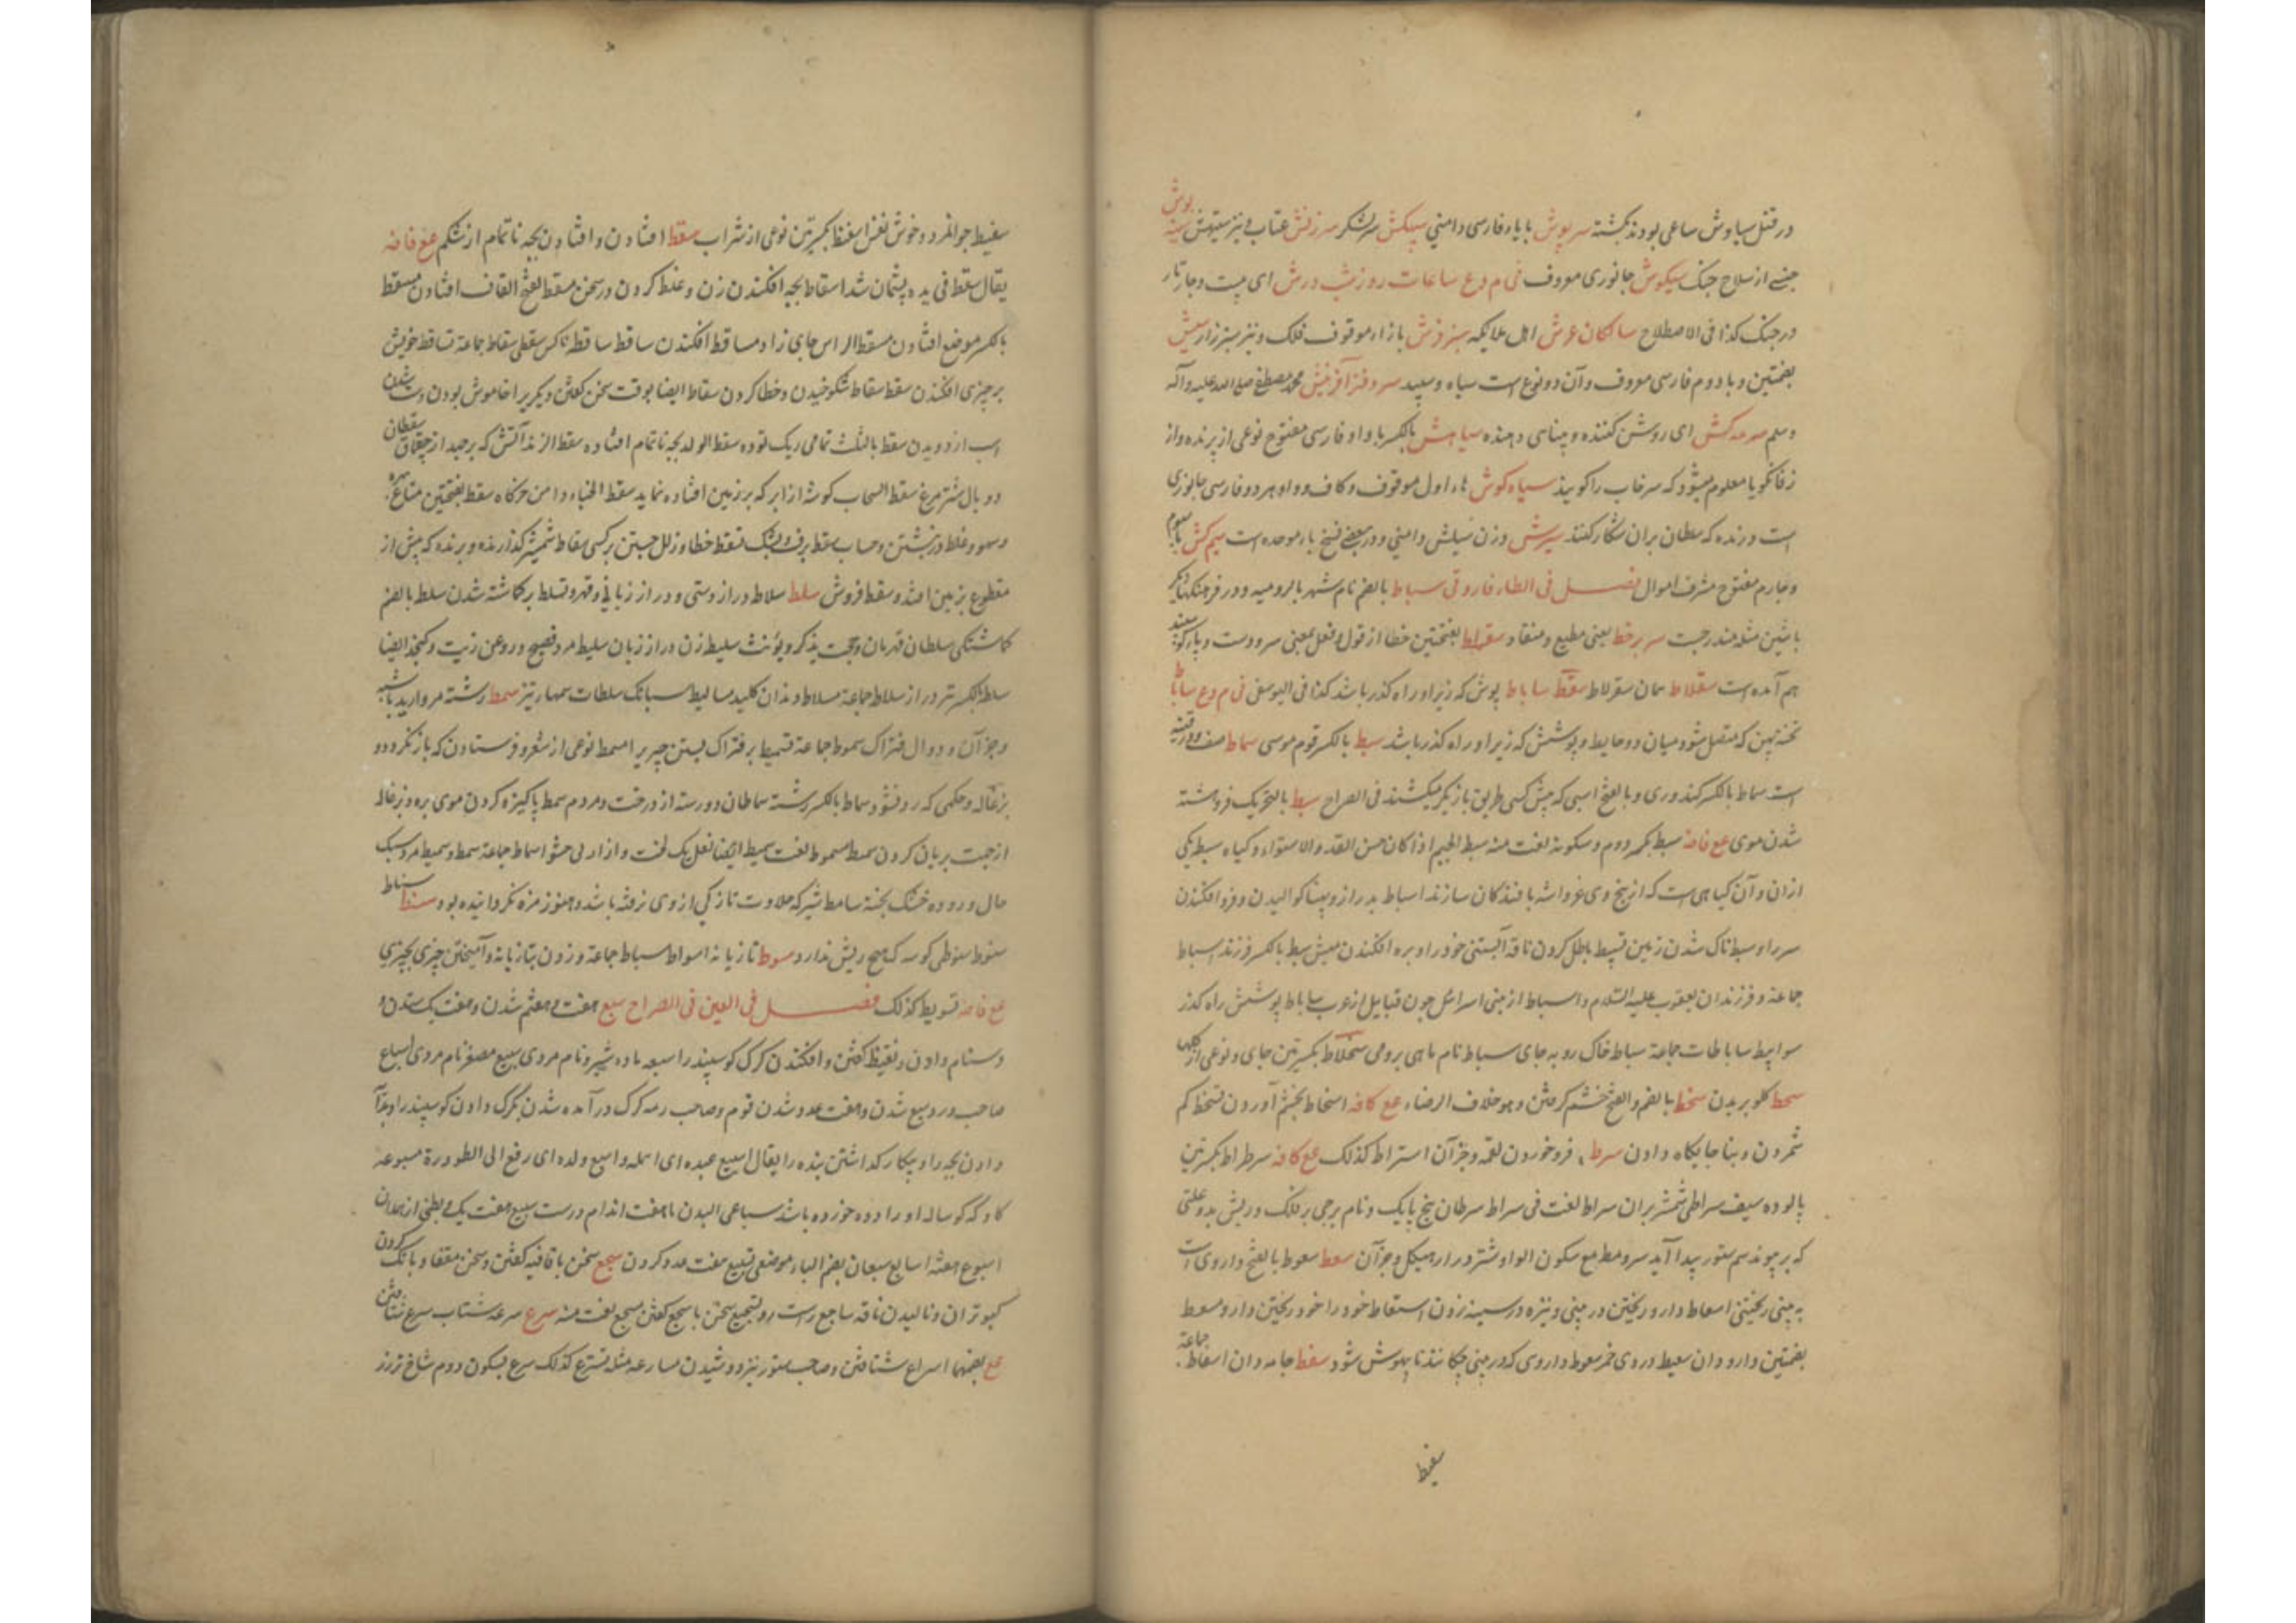 در قتل سیاوش ساعی بودند کشته سرپوش با یاء فارسی دامنی پیکش سرلشکر سرزنش عتاب و نیز
جنسے از سلاح جنک سیکوش جانوری معروف فی م و ع ساعات روز شب درش ای
در جنک کذا فی الاصطلاح ساکنان عرش اهل ملایکه سبز فرش با زاء موقوف فلک و نیز سبزه زار
بضمتین و با دوم فارسی معروف و آن دو نوع است سیاه و سپید سر دفتر آفرینش محمد مصطفی صلی الله علیه وآله
وسلم سرمه کش ای روشن کننده و بینای دهنده سیاهش بالکسر با واو فارسی مفتوح نوعی از پرنده و از
زفانکویا معلوم میشود که سرخاب را کویند سیاه کوش هاء اول موقوف و کاف و واو هر دو فارسی جانوری
است درنده که سلطان بران شکار کنند
وچارم مفتوح مشرف اموال فصل فی الطاء فاروقی سباط بالضم نام شهر بالرومیه و در فرهنک
سر بر خط یعنی مطیع و منقاد سقراط بفتحتین خطا از قول و فعل بمعنی
هم آمده است سقلاط همان سقرلاط ساباط پوش که زیر او راه کذر باشد کذا فی الیوسفی فی م و ع ساباط
میان دو حایط و پوشش که زیر او راه کذر باشد سبط بالکسر قوم موسی سماط صف
است سماط بالکسر کندوری و بالفتح اسبی که پیش کسی بطریق بازیکر میکشند فی الصراح سبط بالتحریک فروهشته
شدن موی ع فاضه سبط بکسر دوم و سکونه لغت منه سبط الجسم اذا کان حسن القد والاستواء و کیاه سبط یکی
ازان و آن کیاهی است که از بیخ وی بافند کان سازند اسباط بدرازو پهنا کوالیدن و فرو افکندن
سر را و سبط ناک شدن زمین تسبیط باطل کردن ناقه آبستنی خود را و بره افکندن میش سبط بالکسر فرزند اسباط
جماعة و فرزندان یعقوب علیه السلام و اسباط از بنی اسرائل چون قبایل از عرب ساباط پوشش راه کذر
سوابیط ساباطات جماعة سباط خاک روبه جای سباط نام ماهی برومی بکسرتین جای و نوعی از
سحط کلو بریدن سخط بالضم والفتح خشم کرفتن و هو خلاف الرضاء ع کافه اسخاط بخشم آوردن تسخط کم
شمردن و بنا جایکاه دادن سرط فرو خوردن لقمه و جز آن استراط کذلک ع کافه سرطراط بکسرتین
پالوده سیف سراطی شمشیر بران سراط لغت فی سراط سرطان پنج پایک و نام برجی بر فلک و ریش بد و علتی
که بر پیوند سم ستور پیدا آید سرومط مع سکون الواو شتر دراز هیکل و جز آن سعط سعوط بالفتح داروی است
به بینی ریختنی اسعاط دارو ریختن در بینی و نیزه در سینه زدن استعاط خود را خود ریختن دارو مسعط
بضمتین دارودان سعیط دردی خمر سعوط داروی که در بینی چکانند تا بیهوش شود سفط جامه دان اسفاط جماعة
سفیط
سفیط جوانمرد و خوش نفس اسفنط بکسرتین نوعی از شراب سقط افتادن و افتادن بچه ناتمام از شکم ع فاضه
یقال سقط فی یده پشیمان شد اسقاط بچه افکندن زن و غلط کردن در سخن مسقط بفتح القاف افتادن مسقط
بالکسر موضع افتادن مسقط الراس جای زاد مساقط افکندن ساقط ساقطه ناکس سقطی سقاط جماعة تساقط خویش
بر چیزی افکندن سقط سقاط شکوخیدن و خطا کردن سقاط ایضا بوقت سخن کفتن دیکریرا خاموش بودن و سست شدن
اسب از دویدن سقط بالثلث تمامی ریک توده سقط الولد بچه ناتمام افتاده سقط الزند آتش که برجهد از چقماق سقطان
دو بال شتر مرغ سقط السحاب کوشه از ابر که بر زمین افتاده نماید سقط الخباء دامن خرکاه سقط بفتحتین متاع
و سهو و غلط در نبشتن و حساب سقط برف و بشک تسقط خطا و زلل جستن بر کسی سقاط شمشیر کذارنده و برنده که پیش از
مقطوع بزمین افتد و سقط فروش سلط سلاط دراز دستی و دراز زبانی و قهر و تسلط بر کماشته شدن سلط بالضم
کماشتکی سلطان قهرمان و حجت یذکر و یؤنث سلیط زن دراز زبان سلیط مرد فصیح و روغن زیت و کنجد ایضا
سلطة بالکسر تیر دراز سلاط جماعة مسلاط دندان کلید مسالیط سنابک سلطات سمهاء تیز سمط رشته مروارید
و جز آن و دوال فتراک سموط جماعة تسمیط بر فتراک بستن چیزیرا مسمط نوعی از شعر و فرستادن که باز نکردد و
بزغاله و حکمی که رد نشود سماط بالکسر رسته سماطان دو رسته از درخت و مردم سمط پاکیزه کردن موی بره و بزغاله
از جهت بریان کردن سمیط مسموط لغت سمیط ایضا نعل یک لخت و ازار بی حشو اسماط جماعة سمط و سمیط مرد سبک
حال و روده خشک پخته سامط شیر که حلاوت تازکی از وی رفته باشد و هنوز مزه نکردانیده بود سنط سناط
سنوط سنوطی کوسه که هیچ ریش ندارد سوط تازیانه اسواط سباط جماعة و زدن بتازیانه و آمیختن چیزی بچیزی
ع فاضه تسویط کذلک فصل فی العین فی الصراح سبع هفت و هفتم شدن و هفت یک ستدن و
دشنام دادن و نقیظ کفتن و افکندن کرک کوسپند را سبعه ماده شیر و نام مردی سبیع مصغر نام مردی اسباع
صاحب ورود سبع شدن و هفت عدد شدن قوم و صاحب رمه کرک در آمده شدن بکرک دادن کوسپند را و بدایه
دادن بچه را و بیکار کذاشتن بنده را یقال اسبع عبده ای اهمله و اسبع ولده ای دفع الی الظئورة مسبوعه
کاو که کوساله او را دده خورده باشد سباعی البدن تا هفت اندام درست سبیع هفت یک و بطنی از همدان
اسبوع هفته اسابیع سبعان بضم الباء موضعی تسبیع هفت عدد کردن سجع سخن با قافیه کفتن و سخن مقفا و بانک کردن
کبوتران و نالیدن ناقه ساجع راست رو تسجیع سخن با سجع کفتن مسجع لغت منه سرع سرعه شتاب سرع شتافتن
ع بضمهما اسراع شتافتن و صاحب ستور تیزرو شدن مسارعه مثله تسرع کذلک سرع بسکون دوم شاخ تر رز